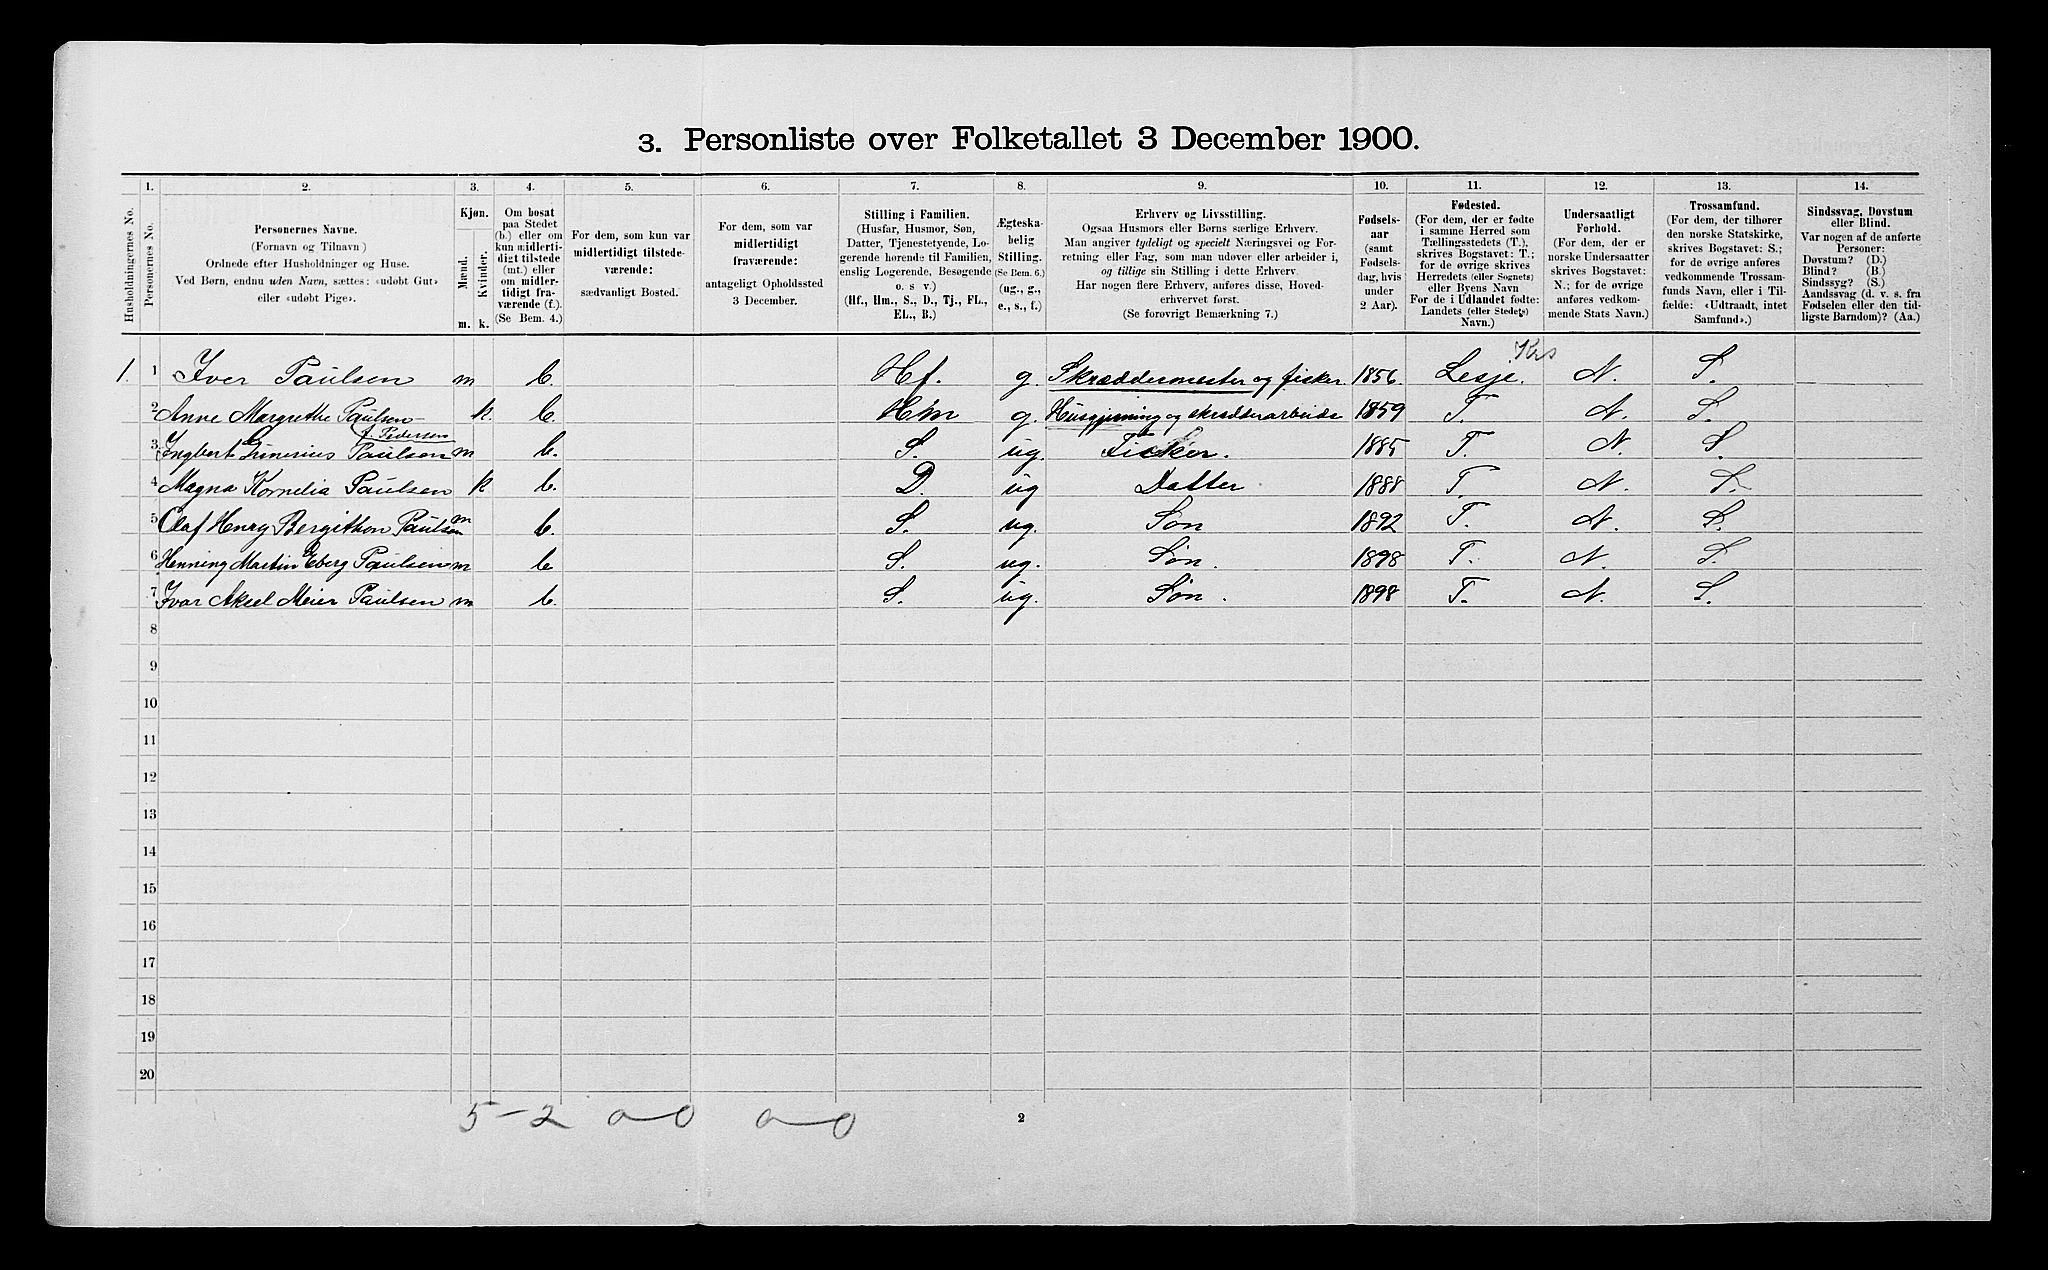 3. Personliste over Folketallet 3 December 1900.
1. 2. 3. 4. 5. 6. 7. 8. 9. 10. 11. 12. 13. 14.
Husholdningernes No.
Personernes No.
Personernes Navne.
(Fornavn og Tilnavn)
Ordnede efter Husholdninger og Huse.
Ved Børn, endnu uden Navn, sættes: «udøbt Gut»
eller «udøbt Pige».
Kjøn.
Mænd.
Kvinder.
m. k.
Om bosat
paa Stedet
(b.) eller om
kun midlerti-
digt tilstede
(mt.) eller
om midler-
tidigt fra-
værende (f.).
(Se Bem. 4.)
For dem, som kun var
midlertidigt tilstede-
værende:
sædvanligt Bosted.
For dem, som var
midlertidigt
fraværende:
antageligt Opholdssted
3 December.
Stilling i Familien.
(Husfar, Husmor, Søn,
Datter, Tjenestetyende, Lo-
gerende hørende til Familien,
enslig Logerende, Besøgende
o. s v.)
(Hf., Hm., S., D., Tj., FL.,
EL., B.)
Ægteska-
belig
Stilling.
(Se Bem. 6.)
(ug., g.,
e., s., f.)
Erhverv og Livsstilling.
Ogsaa Husmors eller Børns særlige Erhverv.
Man angiver tydeligt og specielt Næringsvei og For-
retning eller Fag, som man udøver eller arbeider i,
og tillige sin Stilling i dette Erhverv.
Har nogen flere Erhverv, anføres disse, Hoved-
erhvervet først.
(Se forøvrigt Bemærkning 7.)
Fødsels-
aar
(samt
Fødsels-
dag, hvis
under
2 Aar).
Fødested.
(For dem, der er fødte
i samme Herred som
Tællingsstedets (T.),
skrives Bogstavet: T.;
for de øvrige skrives
Herredets (eller Sognets)
eller Byens Navn
For de i Udlandet fødte:
Landets (eller Stedets)
Navn.)
Undersaatligt
Forhold.
(For dem, der er
norske Undersaatter
skrives Bogstavet:
N.; for de øvrige
anføres vedkom-
mende Stats Navn.)
Trossamfund.
(For dem, der tilhører
den norske Statskirke,
skrives Bogstavet: S.;
for de øvrige anføres
vedkommende Trossam-
funds Navn, eller i Til-
fælde: «Udtraadt, intet
Samfund».)
Sindssvag, Døvstum
eller Blind.
Var nogen af de anførte
Personer:
Døvstum? (D.)
Blind? (B.)
Sindssyg? (S.)
Aandssvag (d. v. s. fra
Fødselen eller den tid-
ligste Barndom)? (Aa.)
Krs
1. 1 Iver Paulsen m b. Hf. g. Skræddermester og fisker 1856. Lesje. N. S.
2 Anne Margrethe Paulsen k. b. Hm g. Husgjerning og skrædderarbeide 1859 T. N. S.
f. Pedersen
3 Ingbert Paulsen m b. S. ug. Fisker. 1885 T. N. S.
4 Magna Kornelia Paulsen k b. D. ug Datter 1888 T. N. S.
5 Olaf Henry Bergithon Paulsen m b. S. ug. Søn 1892 T. N. S.
6 Henning Martin Eberg Paulsen m b S. ug. Søn. 1898 T. N. S.
7 Ivar Aksel Meier Paulsen m b. S. ug. Søn. 1898 T. N. S.
8
9
10
11
12
13
14
15
16
17
18
19
20
5-2 0-0 0-0 2